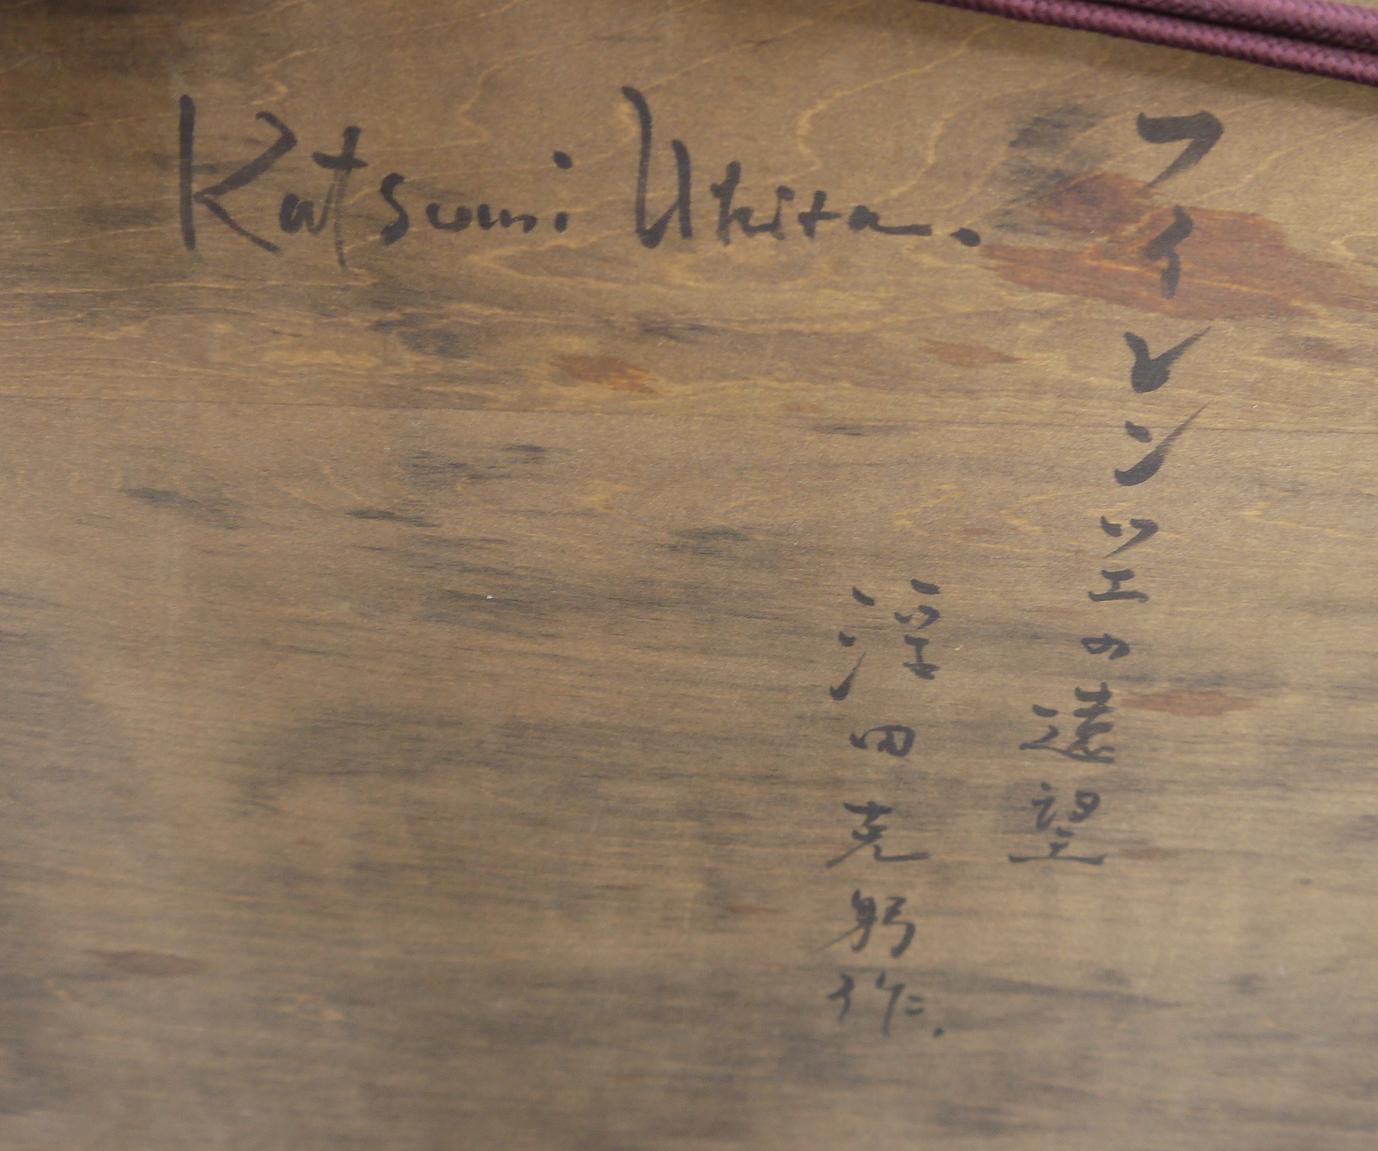 Katsumi Ukita.
フィレンツェの遠望
浮田克躬作.